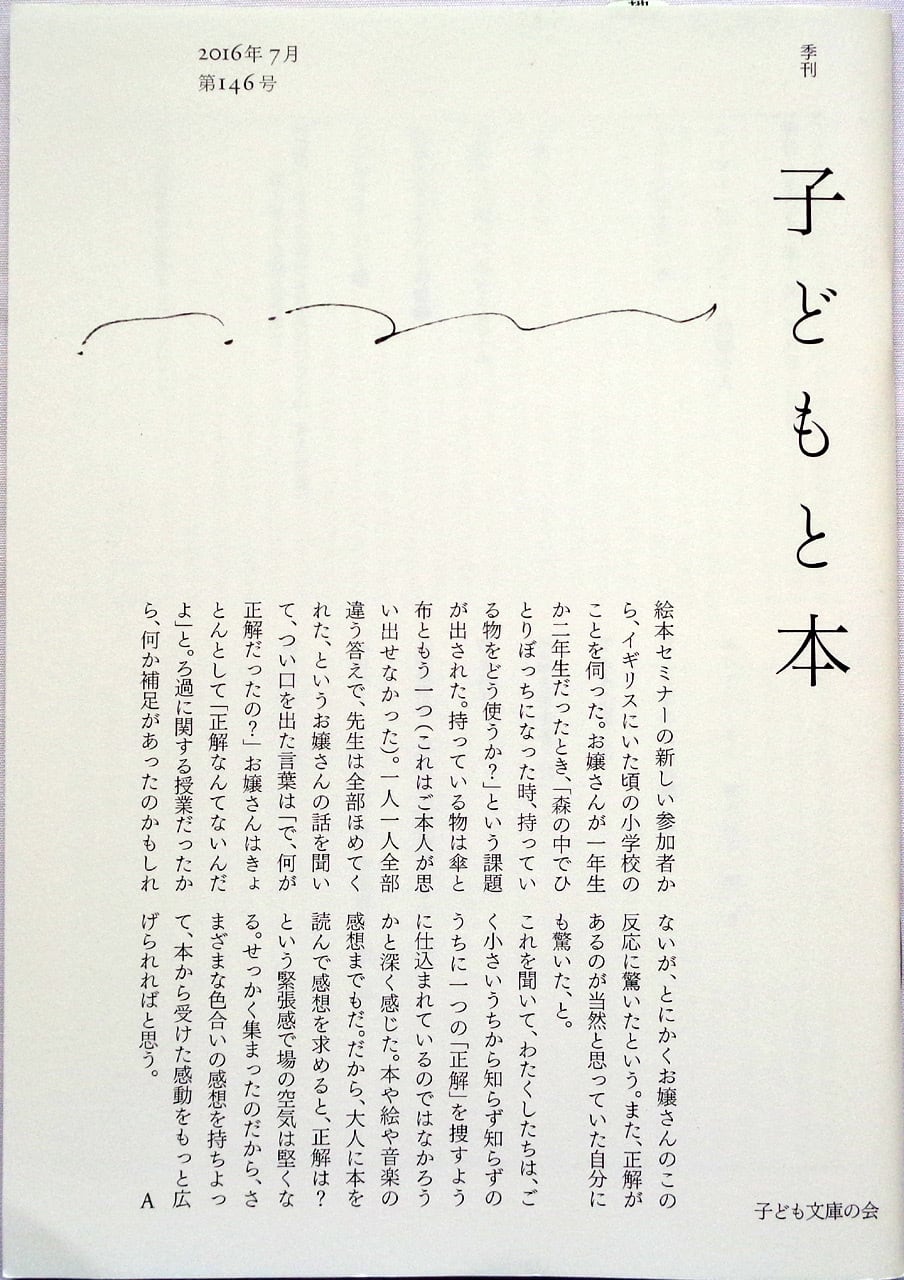 季刊
子どもと本
2016年7月
第146号
絵本セミナーの新しい参加者か
ら、イギリスにいた頃の小学校の
ことを伺った。お嬢さんが一年生
か二年生だったとき、「森の中でひ
とりぼっちになった時、持ってい
る物をどう使うか?」という課題
が出された。持っている物は傘と
布ともう一つ(これはご本人が思
い出せなかった)。一人一人全部
違う答えで、先生は全部ほめてく
れた、というお嬢さんの話を聞い
て、つい口を出た言葉は「で、何が
正解だったの?」お嬢さんはきょ
とんとして「正解なんてないんだ
よ」と。ろ過に関する授業だったか
ら、何か補足があったのかもしれ
ないが、とにかくお嬢さんのこの
反応に驚いたという。また、正解が
あるのが当然と思っていた自分に
も驚いた、と。
これを聞いて、わたくしたちは、ご
く小さいうちから知らず知らずの
うちに一つの「正解」を捜すよう
に仕込まれているのではなかろう
かと深く感じた。本や絵や音楽の
感想までもだ。だから、大人に本を
読んで感想を求めると、正解は?
という緊張感で場の空気は堅くな
る。せっかく集まったのだから、さ
まざまな色合いの感想を持ちよっ
て、本から受けた感動をもっと広
げられればと思う。 A
子ども文庫の会